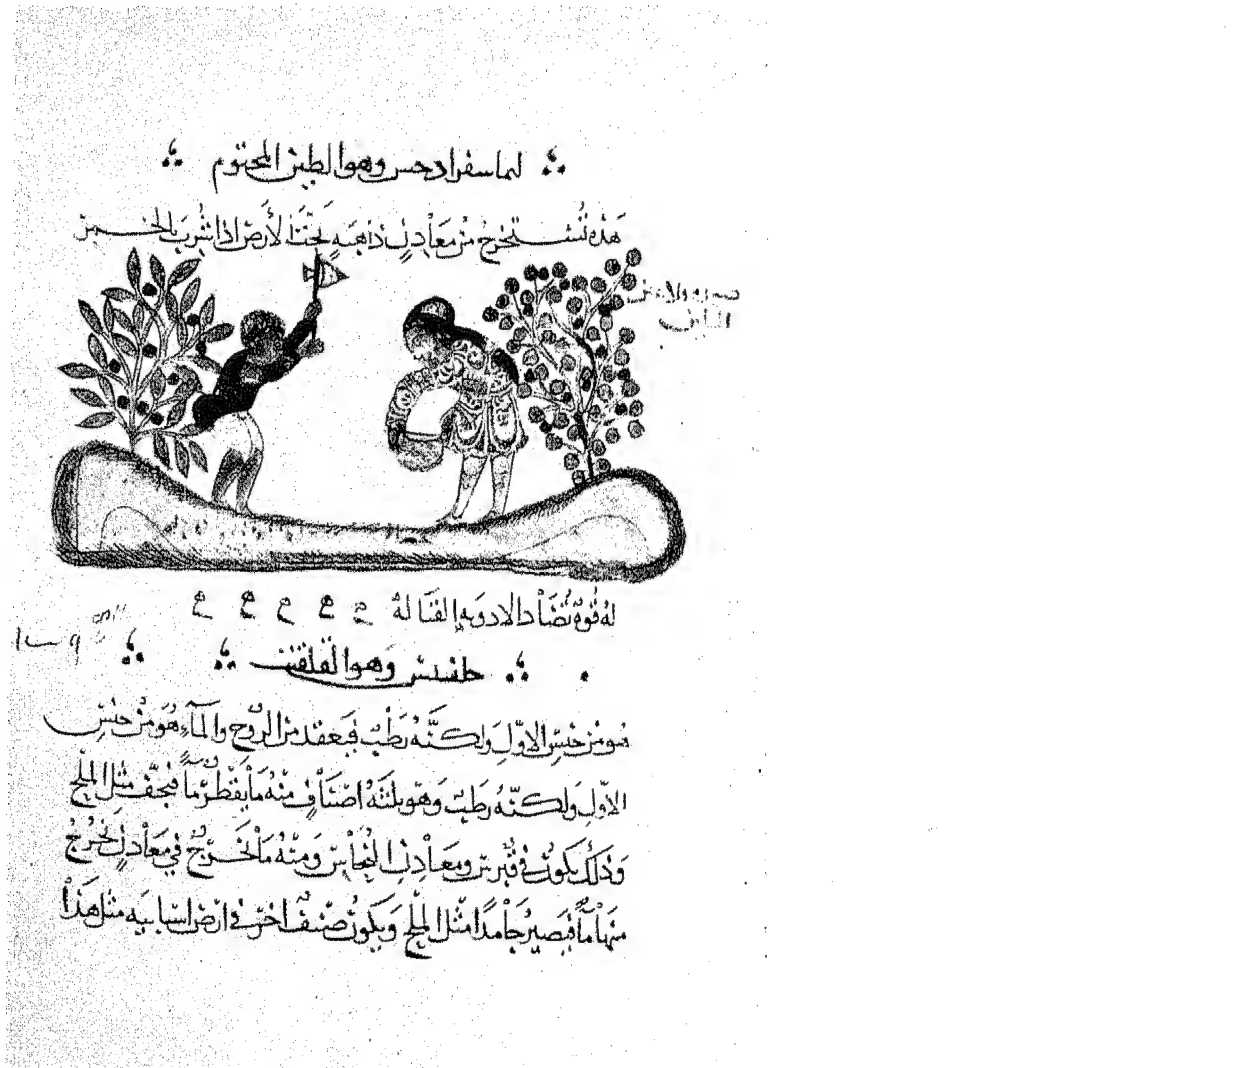 لىماسفرادحس وهو الطين المختوم
هَذه تُستخرج من معادن ذاهبة تحت الأرض اذا شرب بالخمر
له قوة تُضَاد الادوية القتالة
حلقىىس وهو القلقنت
هو من جنس الاوّل ولكنّه رَطْب فيعقد من الروح والمآء هو من جنس
الاوّل ولكنّه رطب وهو ثلثة اصناف منه ما يقطر مآ فيجفّ مثل الملح
وذلك يكون في قبرس ومعادن النحاس ومنه ما يخرج في معادن يخرج
منها مآ فيصير جامدًا مثل الملح ويكون صنف اخر في ارض اسبانيه مثل هذا